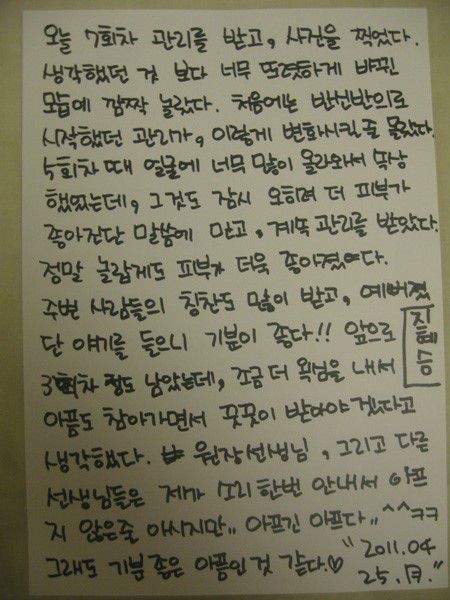 오늘 7회차 관리를 받고, 사진을 찍었다.
생각했던 것 보다 너무 뚜렷하게 바뀐
모습에 깜짝 놀랐다. 처음에는 반신반의로
시작했던 관리가, 이렇게 변화시킬 줄 몰랐다.
5회차 때 얼굴에 너무 많이 올라와서 속상
했었는데, 그것도 잠시 오히려 더 피부가
좋아진단 말씀에 믿고, 계속 관리를 받았다.
정말 놀랍게도 피부가 더욱 좋아졌였다.
주변 사람들의 칭찬도 많이 받고, 예뻐졌
단 얘기를 들으니 기분이 좋다!! 앞으로
3회차 정도 남았는데, 조금 더 욕심을 내서
아픔도 참아가면서 꿋꿋이 받아야 겠다고
생각했다. 원장선생님, 그리고 다른
선생님들은 제가 소리 한번 안내서 아프
지 않은줄 아시지만.. 아프긴 아프다.. ^^ㅋㅋ
그래도 기분 좋은 아픔인 것 같다.♡
"2011.04
25.月."